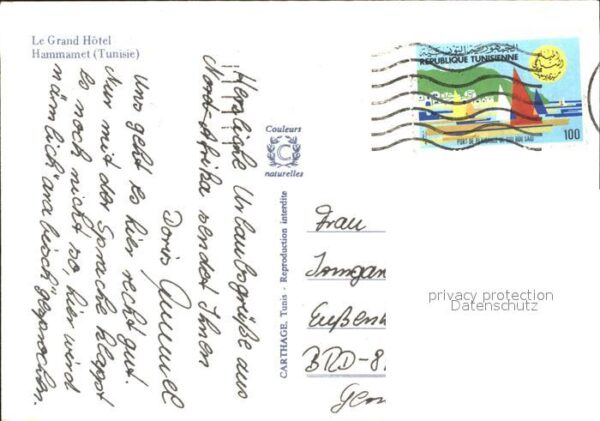 Le Grand Hôtel
Hammamet (Tunisie)
Herzliche Urlaubsgrüße aus
Nord-Afrika sendet Ihnen
Doris
Uns geht es hier recht gut.
Nur mit der Sprache klappt
es noch nicht so, hier wird
nämlich "arabisch" gesprochen.
Couleurs
C
naturelles
CARTHAGE, Tunis - Reproduction interdite
الجمهورية التونسية
REPUBLIQUE TUNISIENNE
PORT DE PLAISANCE DE SIDI BOU SAID
100
Frau
Irmgar
Eußenh
BRD-8
Ger
privacy protection
Datenschutz